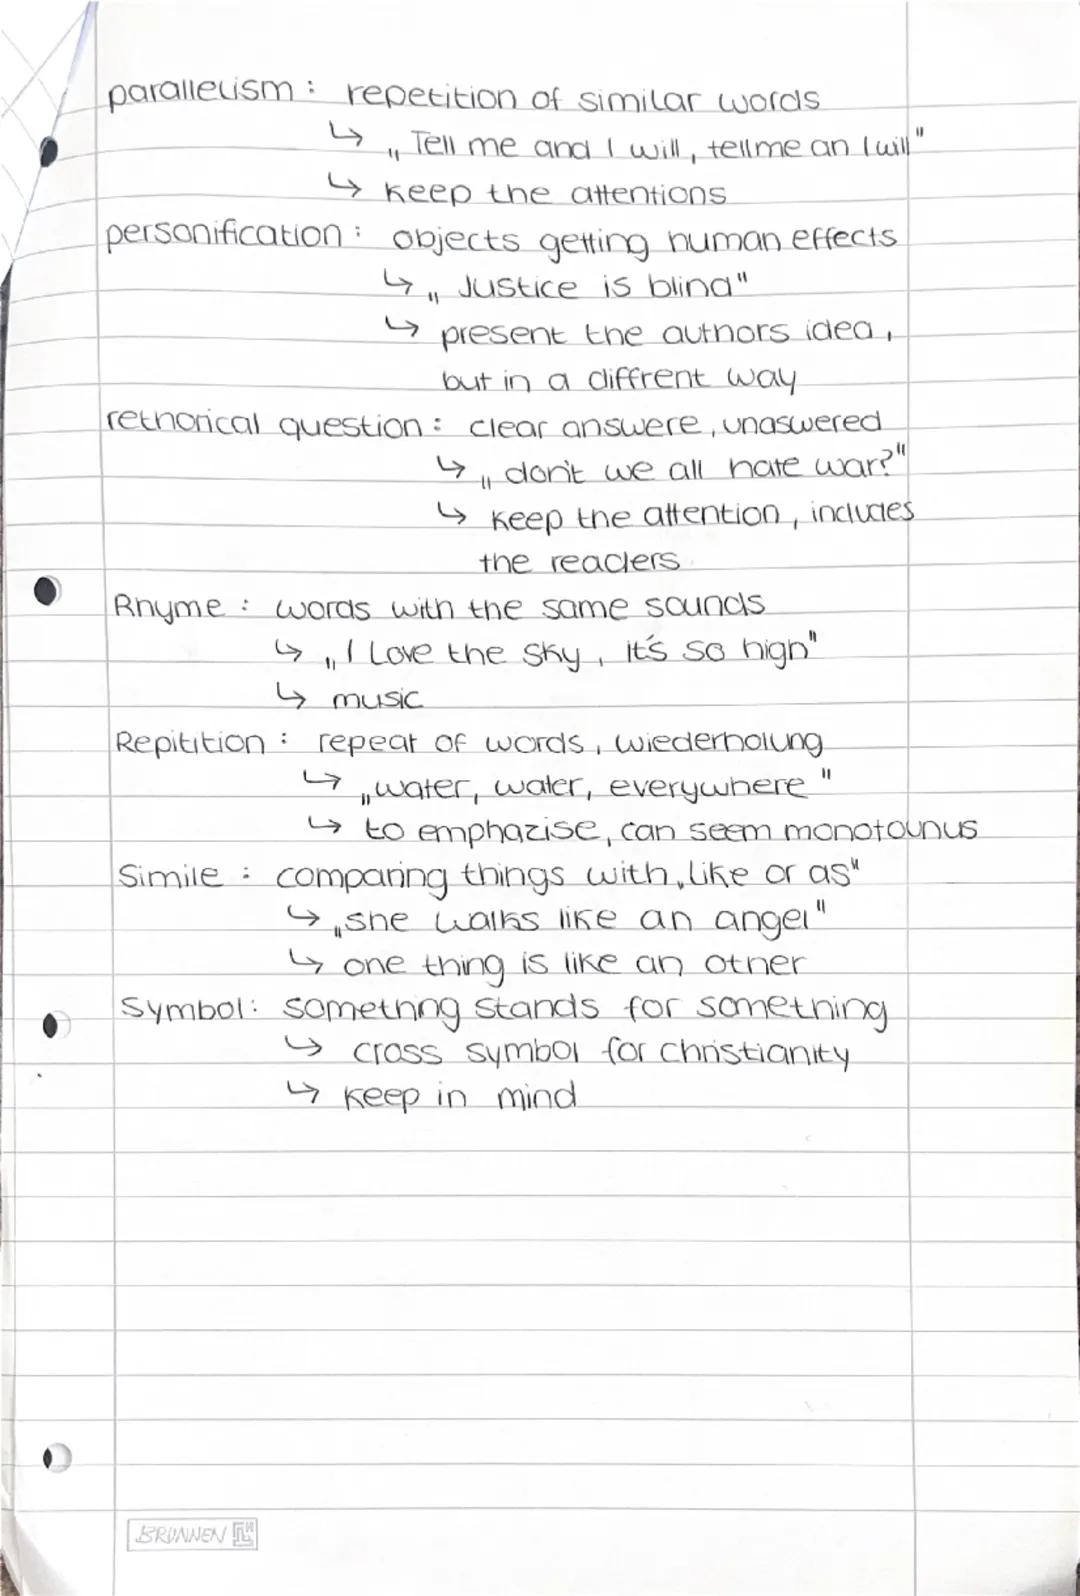 parallelism: repetition of similar words
↳ „Tell me and I will, tell me an I will"
↳ keep the attentions
personification: objects getting human effects
↳ „Justice is blind"
↳ present the authors idea,
but in a diffrent way
rethorical question: clear answere, unaswered
↳ „don't we all hate war?"
↳ keep the attention, includes
the readers
Rhyme: words with the same sounds
↳ „I Love the sky, it's so high"
↳ music
Repitition: repeat of words, wiederholung
↳ „water, water, everywhere"
↳ to emphazise, can seem monotounus
Simile: comparing things with „like or as"
↳ „she walks like an angel"
↳ one thing is like an other
Symbol: somethng stands for something
↳ cross symbol for christianity
↳ keep in mind
BRUNNEN